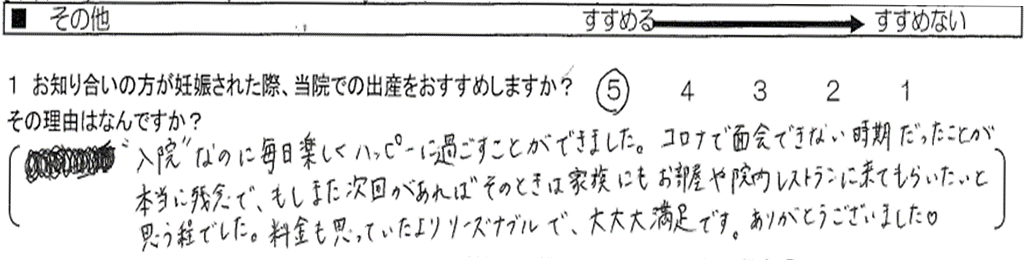 ■ その他 すすめる → すすめない
1 お知り合いの方が妊娠された際、当院での出産をおすすめしますか? ⑤ 4 3 2 1
その理由はなんですか?
"入院"なのに毎日楽しくハッピーに過ごすことができました。コロナで面会できない時期だったことが
本当に残念で、もしまた次回があればそのときは家族にもお部屋や院内レストランに来てもらいたいと
思う程でした。料金も思っていたよりリーズナブルで、大大大満足です。ありがとうございました♡